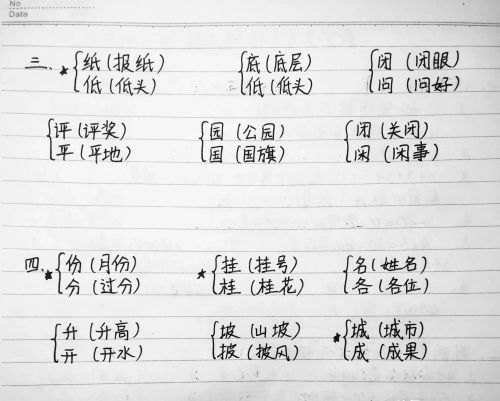 No
Date
三、★纸（报纸） 底（底层） 闭（闭眼）
低（低头） 低（低头） 问（问好）
评（评奖） 园（公园） 闭（关闭）
平（平地） 国（国旗） 闲（闲事）
四、★份（月份） ★挂（挂号） 名（姓名）
分（过分） 桂（桂花） 各（各位）
升（升高） 坡（山坡） ★城（城市）
开（开水） 披（披风） 成（成果）